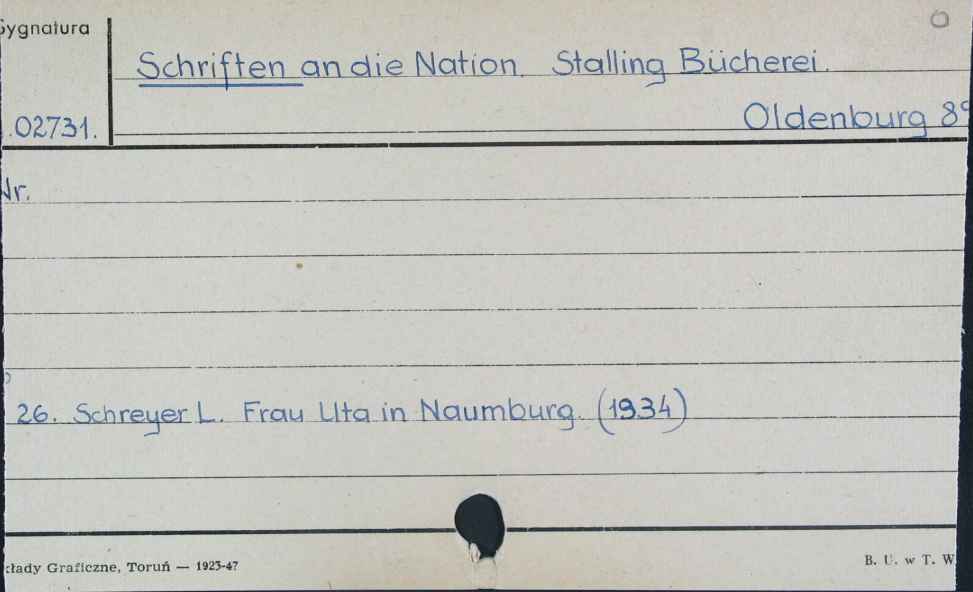 Sygnatura
Schriften an die Nation. Stalling Bücherei.
02731.
Oldenburg 8°
Nr.
26. Schreyer L. Frau Uta in Naumburg. (1934)
kłady Graficzne, Toruń — 1923-47
B. U. w T. W